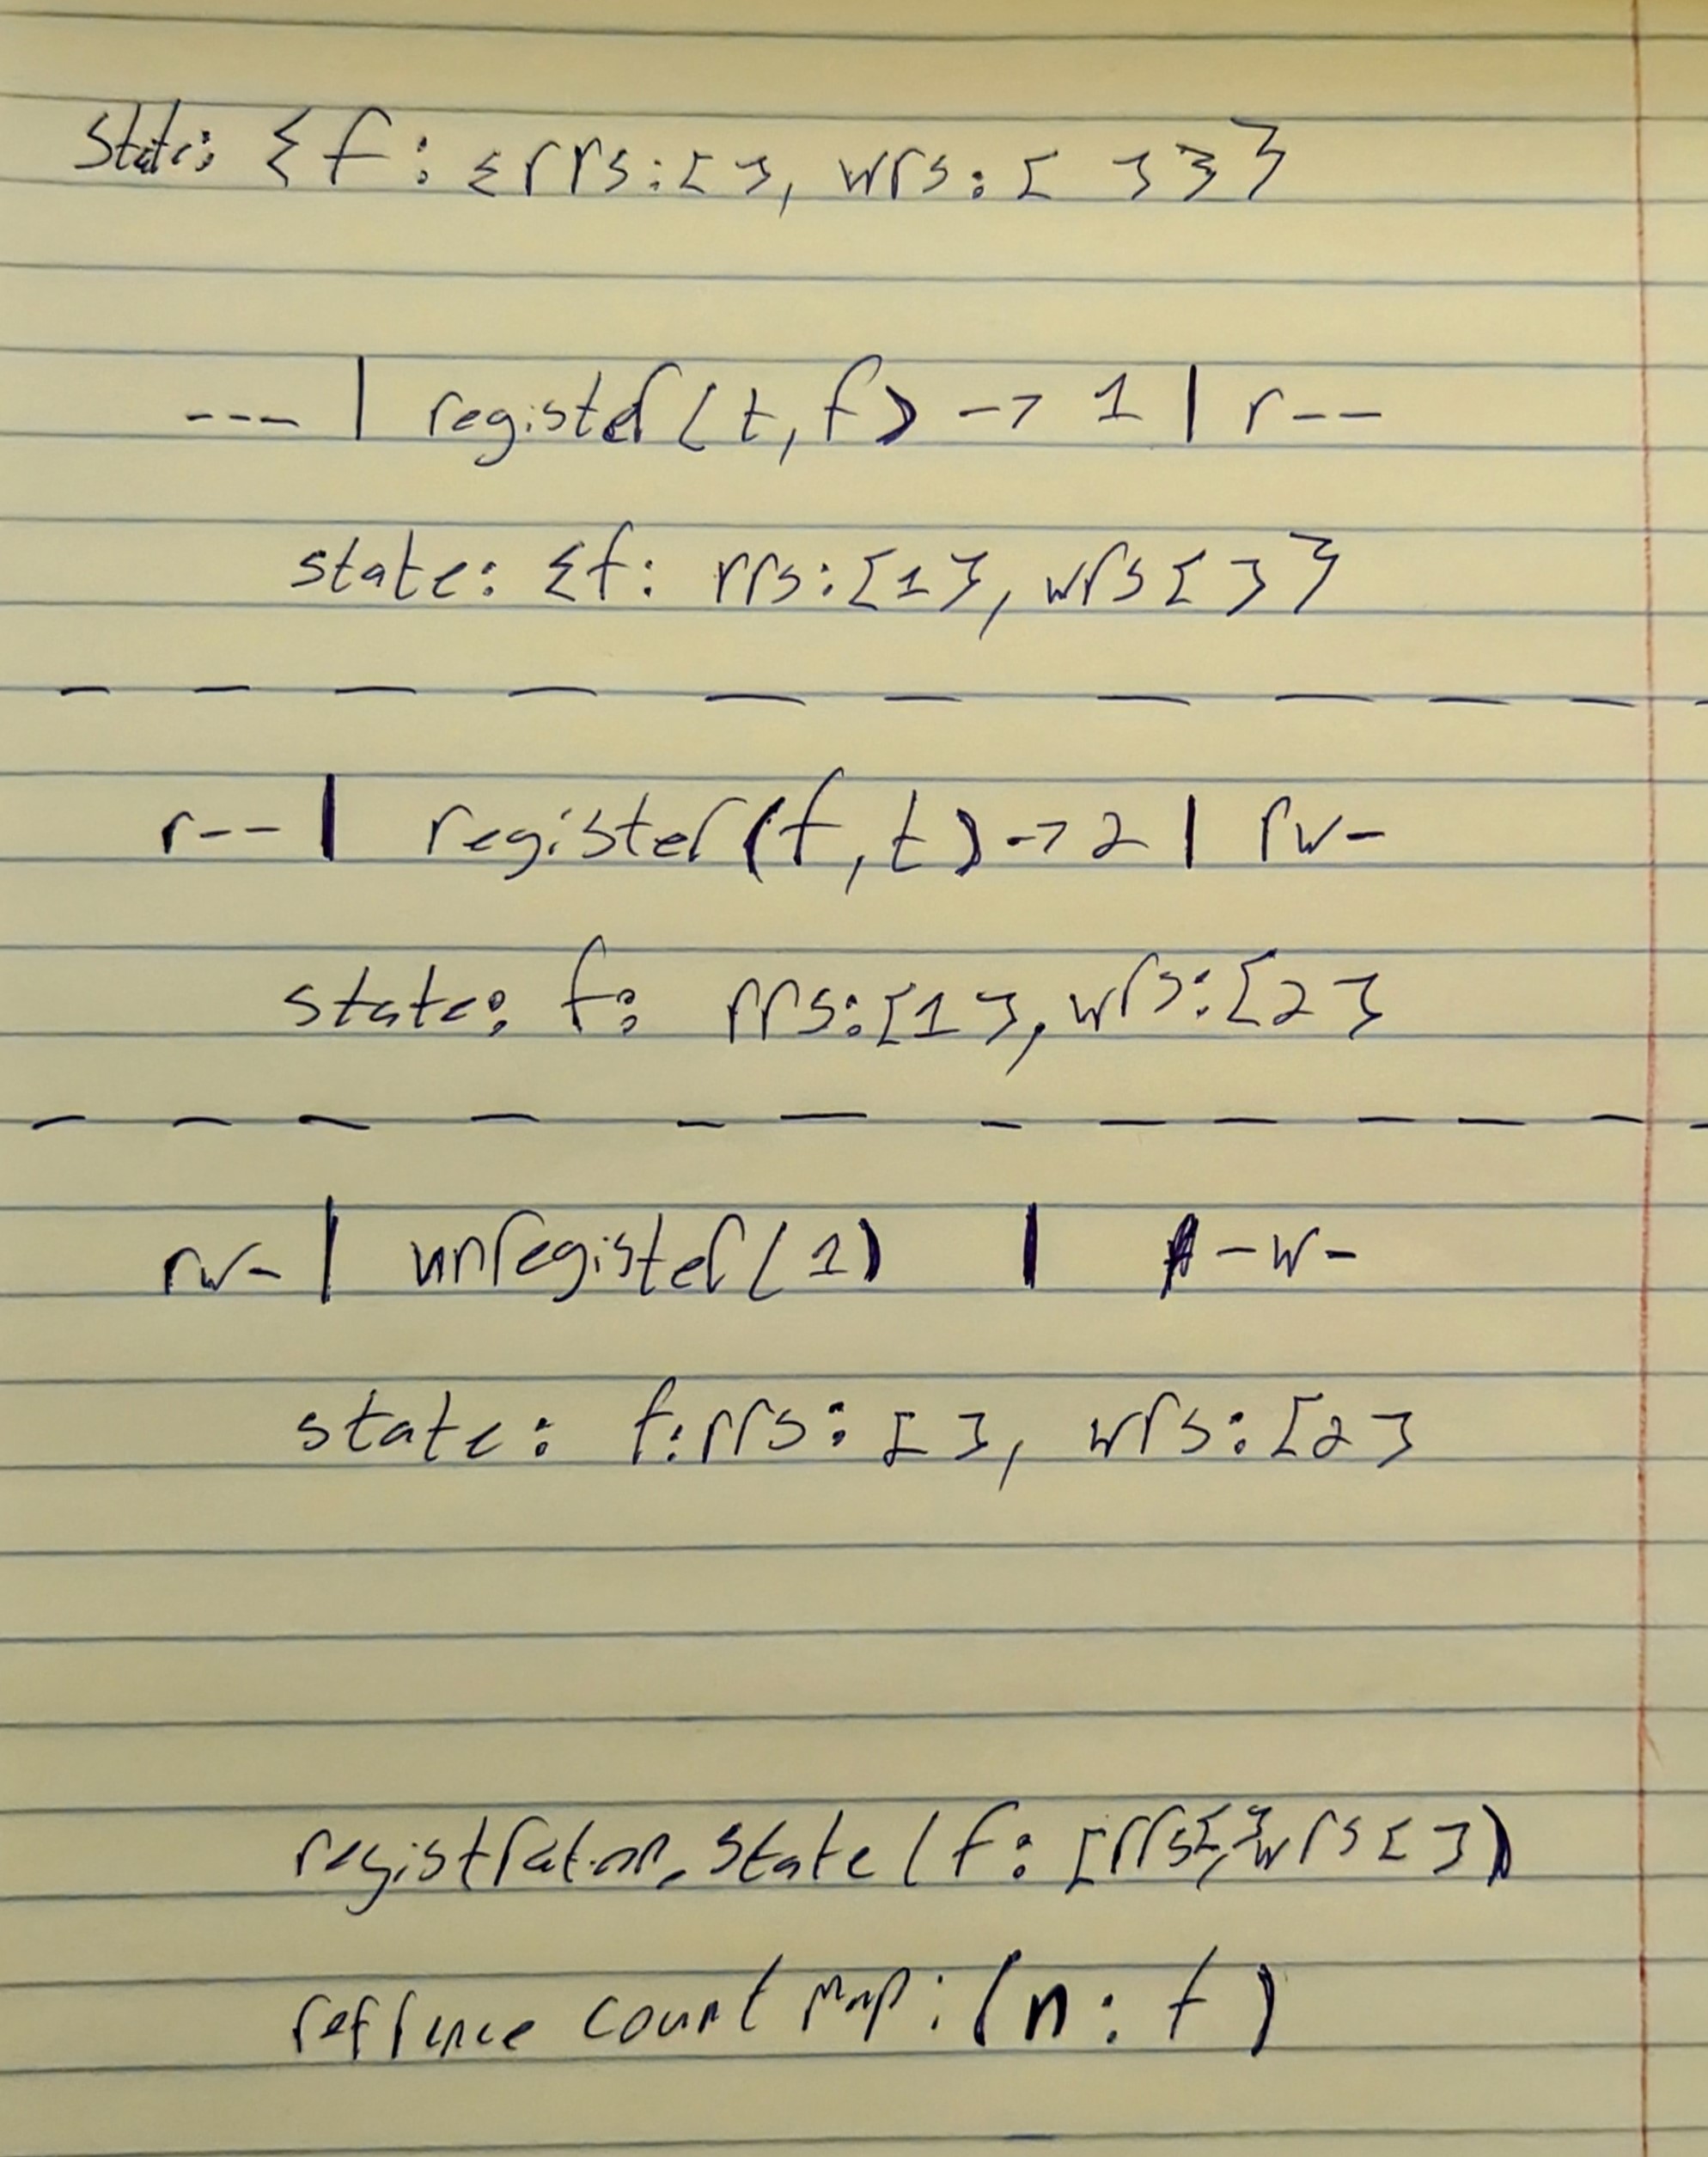 state: {f: {rrs:[], wrs:[ ]}}
--- | register(t,f) -> 1 | r--
state: {f: rrs:[1], wrs[]}
r-- | register(f,t) -> 2 | rw-
state: f: rrs:[1], wrs:[2]
rw- | unregister(1) | -w-
state: f:rrs: [], wrs:[2]
registration_state (f: [rrs[], wrs[])
reffrence count map: (n: f)